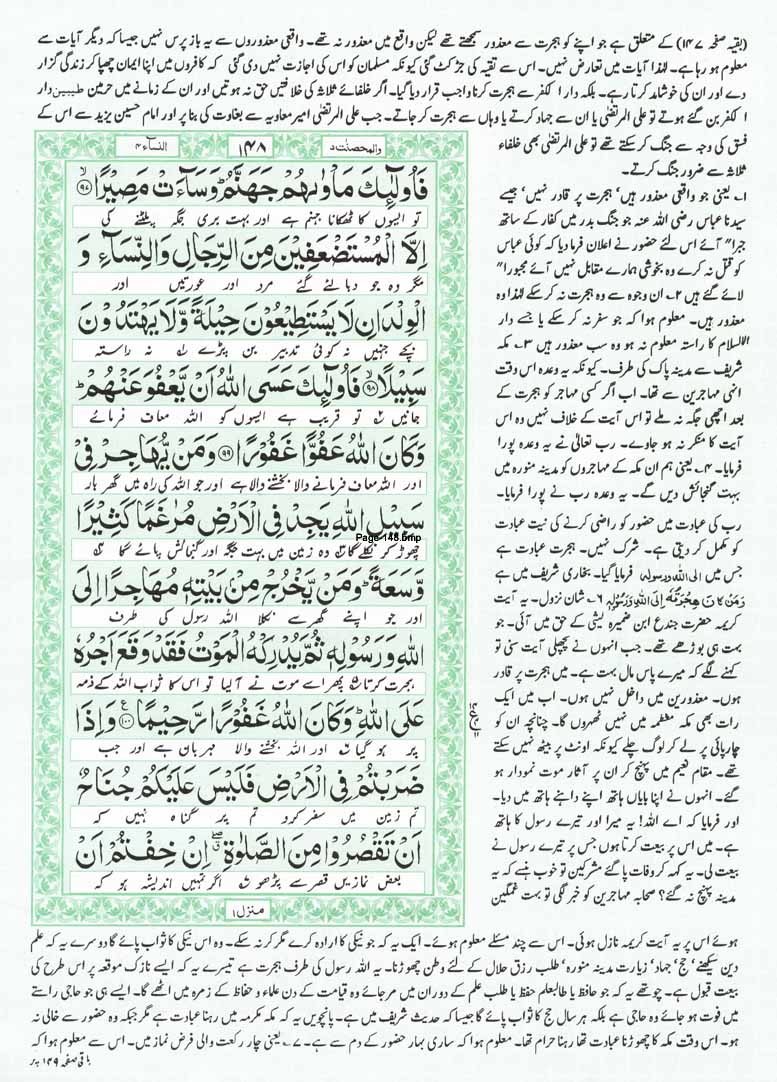 (بقیہ صفحہ ۱۴۷) کے متعلق ہے جو اپنے کو ہجرت سے معذور سمجھتے تھے لیکن واقع میں معذور نہ تھے۔ واقعی معذوروں سے یہ باز پرس نہیں جیسا کہ دیگر آیات سے
معلوم ہو رہا ہے۔ لہٰذا آیات میں تعارض نہیں۔ اس سے تقیہ کی جڑ کٹ گئی کیونکہ مسلمان کو اس کی اجازت نہیں دی گئی کہ کافروں میں اپنا ایمان چھپا کر زندگی گزار
دے اور ان کی خوشامد کرتا رہے۔ بلکہ دار الکفر سے ہجرت کرنا واجب قرار دیا گیا۔ اگر خلفائے ثلاثہ کی خلافتیں حق نہ ہوتیں اور ان کے زمانے میں حرمین طیبین دار
الکفر بن گئے ہوتے تو علی المرتضٰی یا ان سے جہاد کرتے یا وہاں سے ہجرت کر جاتے۔ جب علی المرتضٰی امیر معاویہ سے بغاوت کی بنا پر اور امام حسین یزید سے اس کے
فسق کی وجہ سے جنگ کر سکتے تھے تو علی المرتضٰی بھی خلفاء
ثلاثہ سے ضرور جنگ کرتے۔
۱۔ یعنی جو واقعی معذور ہیں' ہجرت پر قادر نہیں' جیسے
سیدنا عباس رضی اللہ عنہ جو جنگ بدر میں کفار کے ساتھ
جبرا" آئے اس لئے حضور نے اعلان فرما دیا کہ کوئی عباس
کو قتل نہ کرے وہ بخوشی ہمارے مقابل نہیں آئے مجبورا"
لائے گئے ہیں ۲۔ ان وجوہ سے وہ ہجرت نہ کر سکے لہٰذا وہ
معذور ہیں۔ معلوم ہوا کہ جو سفر نہ کر سکے یا جسے دار
الاسلام کا راستہ معلوم نہ ہو وہ سب معذور ہیں ۳۔ مکہ
شریف سے مدینہ پاک کی طرف۔ کیونکہ یہ وعدہ اس وقت
انہی مہاجرین سے تھا۔ اب اگر کسی مہاجر کو ہجرت کے
بعد اچھی جگہ نہ ملے تو اس آیت کے خلاف نہیں وہ اس
آیت کا منکر نہ ہو جاوے۔ رب تعالٰی نے یہ وعدہ پورا
فرمایا۔ ۴۔ یعنی ہم ان مکہ کے مہاجروں کو مدینہ منورہ میں
بہت گنجائش دیں گے۔ یہ وعدہ رب نے پورا فرمایا۔
رب کی عبادت میں حضور کو راضی کرنے کی نیت عبادت
کو مکمل کر دیتی ہے۔ شرک نہیں۔ ہجرت عبادت ہے
جس میں الی اللہ ورسولہ فرمایا گیا۔ بخاری شریف میں ہے
وَمَنْ كَانَ هِجْرَتُهٗ اِلَى اللّٰهِ وَرَسُوْلِهٖ ۶۔ شان نزول۔ یہ آیت
کریمہ حضرت جندع ابن ضمیرہ لیثی کے حق میں آئی۔ جو
بہت ہی بوڑھے تھے۔ جب انہوں نے پچھلی آیت سنی تو
کہنے لگے کہ میرے پاس مال بہت ہے۔ میں ہجرت پر قادر
ہوں۔ معذورین میں داخل نہیں ہوں۔ اب میں ایک
رات بھی مکہ معظمہ میں نہیں ٹھہروں گا۔ چنانچہ ان کو
چارپائی پر لے کر لوگ چلے کیونکہ اونٹ پر بیٹھ نہیں سکتے
تھے۔ مقام تنعیم میں پہنچ کر ان پر آثار موت نمودار ہو
گئے۔ انہوں نے اپنا بایاں ہاتھ اپنے داہنے ہاتھ میں دیا۔
اور فرمایا کہ اے اللہ! یہ میرا اور تیرے رسول کا ہاتھ
ہے۔ میں اس پر بیعت کرتا ہوں جس پر تیرے رسول نے
بیعت لی۔ یہ کہہ کر وفات پا گئے مشرکین تو خوب ہنسے کہ یہ
مدینہ پہنچ نہ گئے؟ صحابہ مہاجرین کو خبر لگی تو بہت غمگین
والمحصنت ۵
۱۴۸
النساء ۴
فَاُولٰٓئِكَ مَاْوٰىهُمْ جَهَنَّمُؕ وَسَآءَتْ مَصِيْرًا ۙ﴿۹۷﴾
تو ایسوں کا ٹھکانا جہنم ہے اور بہت بری جگہ پلٹنے کی
اِلَّا الْمُسْتَضْعَفِيْنَ مِنَ الرِّجَالِ وَالنِّسَآءِ وَ
مگر وہ جو دبا لئے گئے مرد اور عورتیں اور
الْوِلْدَانِ لَا يَسْتَطِيْعُوْنَ حِيْلَةً وَّلَا يَهْتَدُوْنَ
بچے جنہیں نہ کوئی تدبیر بن پڑے نہ راستہ
سَبِيْلًا ۙ﴿۹۸﴾ فَاُولٰٓئِكَ عَسَى اللّٰهُ اَنْ يَّعْفُوَ عَنْهُمْؕ
جانیں تو قریب ہے ایسوں کو اللہ معاف فرمائے
وَكَانَ اللّٰهُ عَفُوًّا غَفُوْرًا ﴿۹۹﴾ وَمَنْ يُّهَاجِرْ فِيْ
اور اللہ معاف فرمانے والا بخشنے والا ہے اور جو اللہ کی راہ میں گھر بار
سَبِيْلِ اللّٰهِ يَجِدْ فِى الْاَرْضِ مُرٰغَمًا كَثِيْرًا
چھوڑ کر نکلے گا وہ زمین میں بہت جگہ اور گنجائش پائے گا
Page-148.bmp
وَّسَعَةًؕ وَمَنْ يَّخْرُجْ مِنْۢ بَيْتِهٖ مُهَاجِرًا اِلَى
اور جو اپنے گھر سے نکلا اللہ رسول کی طرف
اللّٰهِ وَرَسُوْلِهٖ ثُمَّ يُدْرِكْهُ الْمَوْتُ فَقَدْ وَقَعَ اَجْرُهٗ
ہجرت کرتا پھر اسے موت نے آلیا تو اس کا ثواب اللہ کے ذمہ
عَلَى اللّٰهِؕ وَكَانَ اللّٰهُ غَفُوْرًا رَّحِيْمًا ﴿۱۰۰﴾ وَاِذَا
پر ہو گیا اور اللہ بخشنے والا مہربان ہے اور جب
ضَرَبْتُمْ فِى الْاَرْضِ فَلَيْسَ عَلَيْكُمْ جُنَاحٌ
تم زمین میں سفر کرو تم پر گناہ نہیں کہ
اَنْ تَقْصُرُوْا مِنَ الصَّلٰوةِ ۖ اِنْ خِفْتُمْ اَنْ
بعض نمازیں قصر سے پڑھو اگر تمہیں اندیشہ ہو کہ
منزل ۱
ہوئے اس پر یہ آیت کریمہ نازل ہوئی۔ اس سے چند مسئلے معلوم ہوئے۔ ایک یہ کہ جو نیکی کا ارادہ کرے مگر کر نہ سکے۔ وہ اس نیکی کا ثواب پائے گا دوسرے یہ کہ علم
دین سیکھنے' حج' جہاد' زیارت مدینہ منورہ' طلب رزق حلال کے لئے وطن چھوڑنا۔ یہ اللہ رسول کی طرف ہجرت ہے تیسرے یہ کہ ایسے نازک موقعہ پر اس طرح کی
بیعت قبول ہے۔ چوتھے یہ کہ جو حافظ یا طالبعلم حفظ یا طلب علم کے دوران میں مر جائے وہ قیامت کے دن علماء و حفاظ کے زمرہ میں اٹھے گا۔ ایسے ہی جو حاجی راستے
میں فوت ہو جائے وہ حاجی ہے بلکہ ہر سال حج کا ثواب پائے گا جیسا کہ حدیث شریف میں ہے۔ پانچویں یہ کہ مکہ مکرمہ میں رہنا عبادت ہے مگر جبکہ وہ حضور سے خالی نہ
ہو۔ اس وقت مکہ کا چھوڑنا عبادت تھا رہنا حرام تھا۔ معلوم ہوا کہ ساری بہار حضور کے دم سے ہے۔ ۷۔ یعنی چار رکعت والی فرض نماز میں۔ اس سے معلوم ہوا کہ
باقی صفحہ ۱۴۹ پر